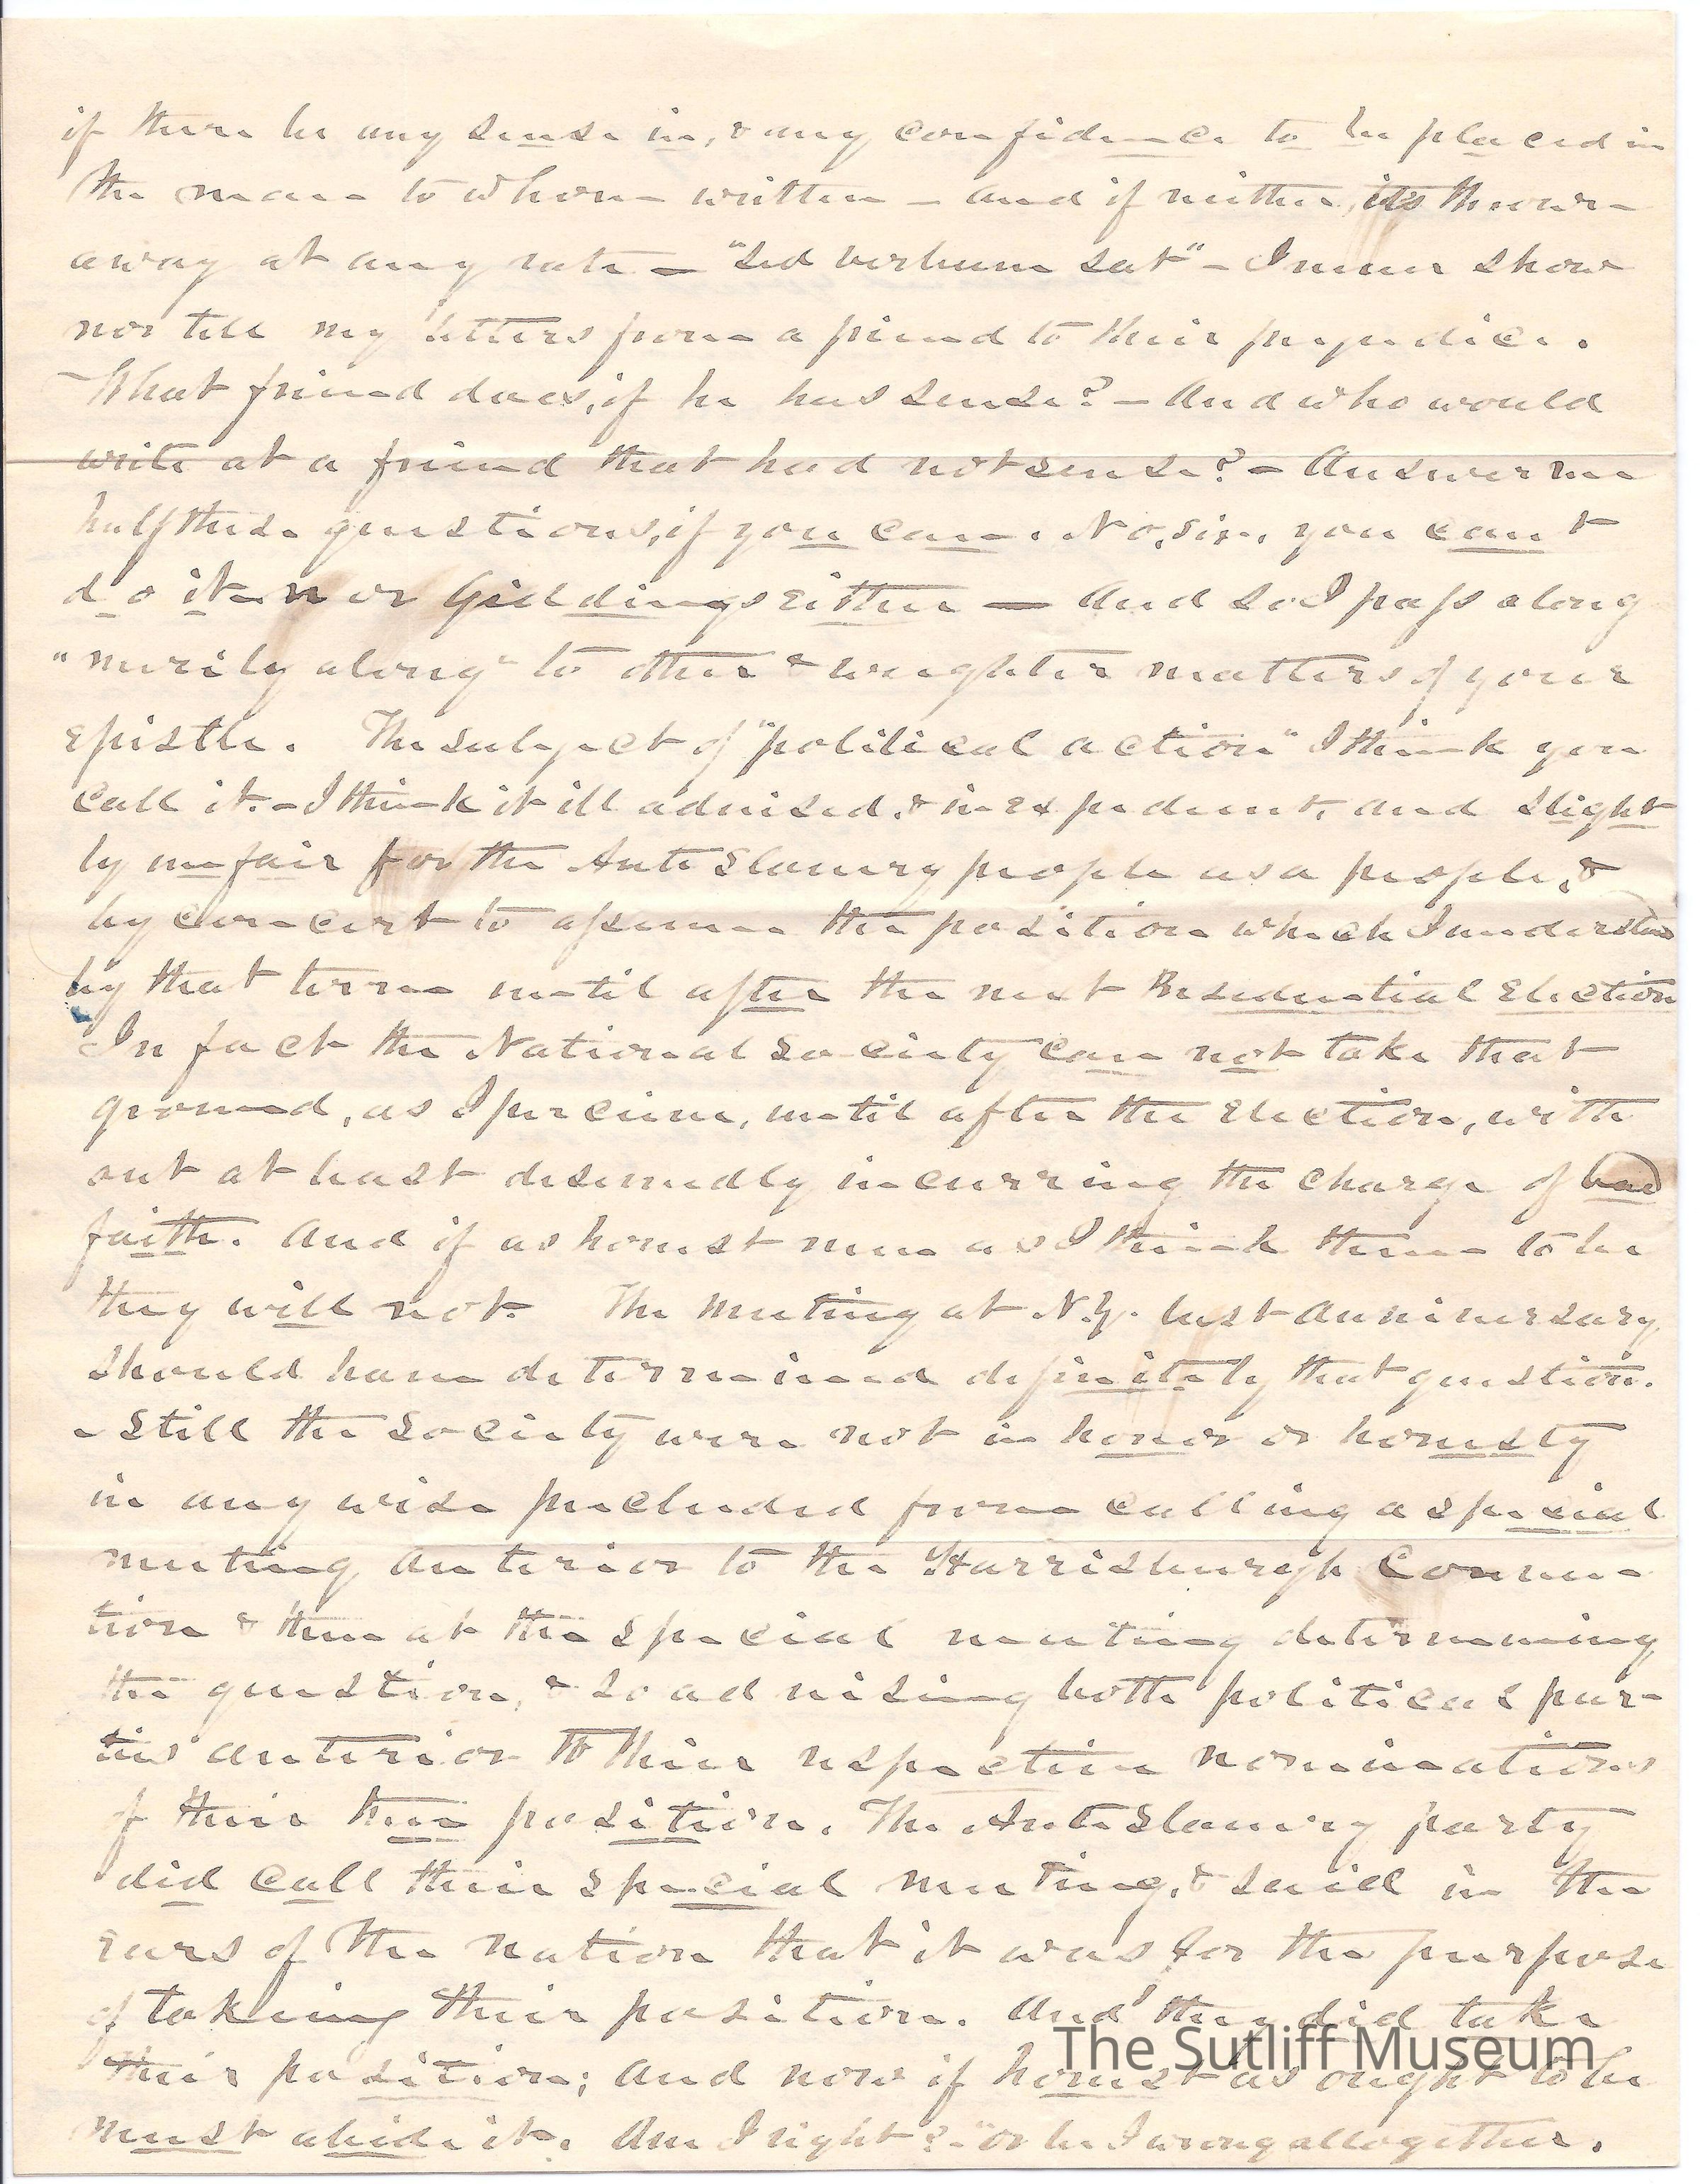 if there be any sense in, & any confidence to be placed in
the man to whom written – and if neither, its thrown
away at any rate – "Sed verbum sat" – I never show
nor tell my letters from a friend to their prejudice.
What friend does, if he has sense? – And who would
write at a friend that had not sense? – Answer me
half these questions, if you can. No, sir, you can't
do it – nor Giddings either — And so I pass along
"merily along" to other & weightier matters of your
epistle. The subject of "political action" I think you
call it. – I think it ill advised, & inexpedient, and slight
ly unfair for the Anti Slavery people as a people, &
by concert to assume the position which I understand
by that term until after the next Presidential Election
In fact the National Society can not take that
ground, as I perceive, until after the Election, with
out at least deservedly incurring the charge of bad
faith. And if as honest men as I think them to be
they will not. The meeting at N.Y. last anniversary
should have determined definitely that question.
– Still the Society were not in honor or honesty
in any wise precluded from calling a special
meeting anterior to the Harrisburgh Conven-
tion & then at the special meeting determining
the question, & so advising both political par-
ties anterior to their respective nominations
of their true position. The Anti Slavery party
did call their special meeting, & said in the
ears of the nation that it was for the purpose
of takeing their position. And they did take
their position; and now if honest as ought to be
must abide it. Am I right? – "or be I wrong alltogether.
The Sutliff Museum